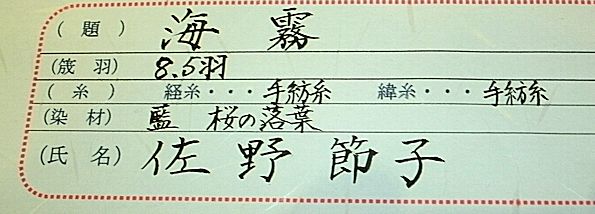 (題) 海霧
(筬羽) 8.5羽
(糸) 経糸・・・手紡糸 緯糸・・・手紡糸
(染材) 藍 桜の落葉
(氏名) 佐野節子